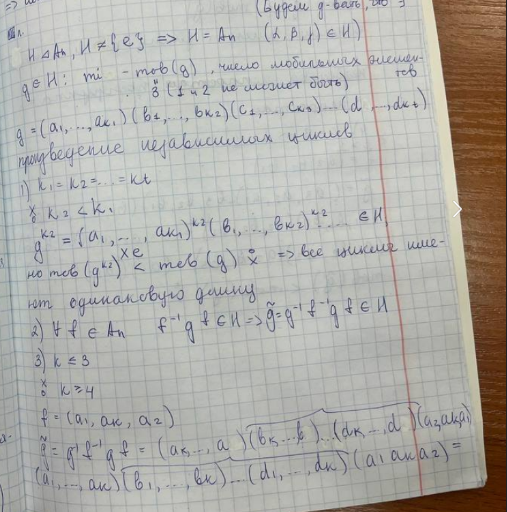 (Будем g-вать, что з
H ⊲ An, H ≠ {e} => H = An (α, β, γ) ∈ H)
g ∈ H: mi - mob(g), число мобильных элемен-
тов
3 (1 и 2 не может быть)
g = (a₁, ..., aₖ₁)(b₁, ..., bₖ₂)(c₁, ..., cₖ₃)...(d, ..., dₖₜ)
произведение независимых циклов
1) k₁ = k₂ = ... = kt
k₂ < k₁
g^k₂ = (a₁, ..., aₖ₁)^k₂ (b₁, ..., bₖ₂)^k₂ ... ∈ H
≠ e
но mob(g^k₂) < mob(g) => все циклы име-
ют одинаковую длину
2) ∀ f ∈ An f⁻¹gf ∈ H => g̃ = g⁻¹f⁻¹gf ∈ H
3) k ≤ 3
k ≥ 4
f = (a₁, aₖ, a₂)
g̃ = g⁻¹f⁻¹gf = (aₖ, ..., a)(bₖ...b)...(dₖ..., d)(a₂aₖa₁)
(a₁, ..., aₖ)(b₁, ..., bₖ)...(d₁, ..., dₖ)(a₁aₖa₂) =